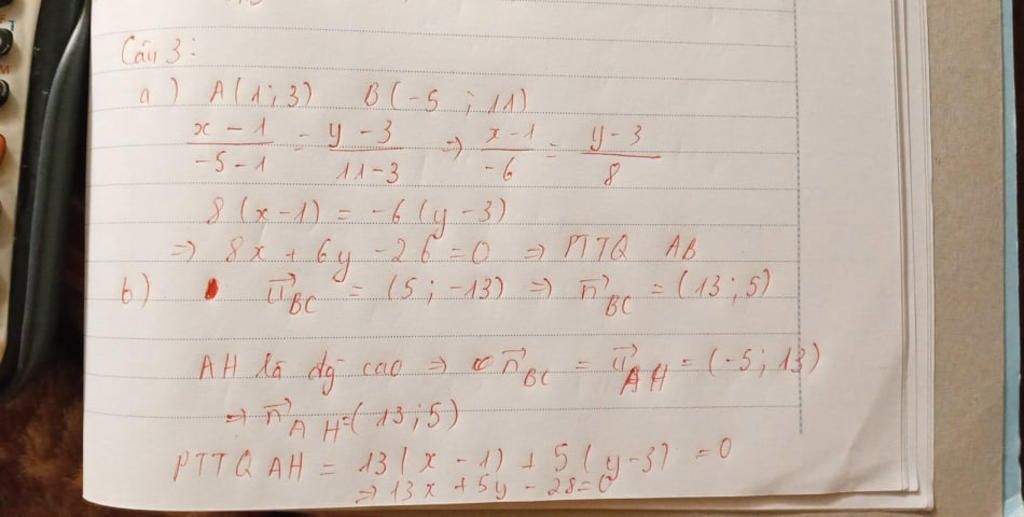 Câu 3:
a) A(1;3) B(-5;11)
x-1/-5-1 = y-3/11-3 => x-1/-6 = y-3/8
8(x-1) = -6(y-3)
=> 8x + 6y - 26 = 0 => PTTQ AB
b) u⃗BC = (5;-13) => n⃗BC = (13;5)
AH là đg cao => n⃗BC = u⃗AH = (-5;13)
=> n⃗AH = (13;5)
PTTQ AH = 13(x-1) + 5(y-3) = 0
=> 13x + 5y - 28 = 0